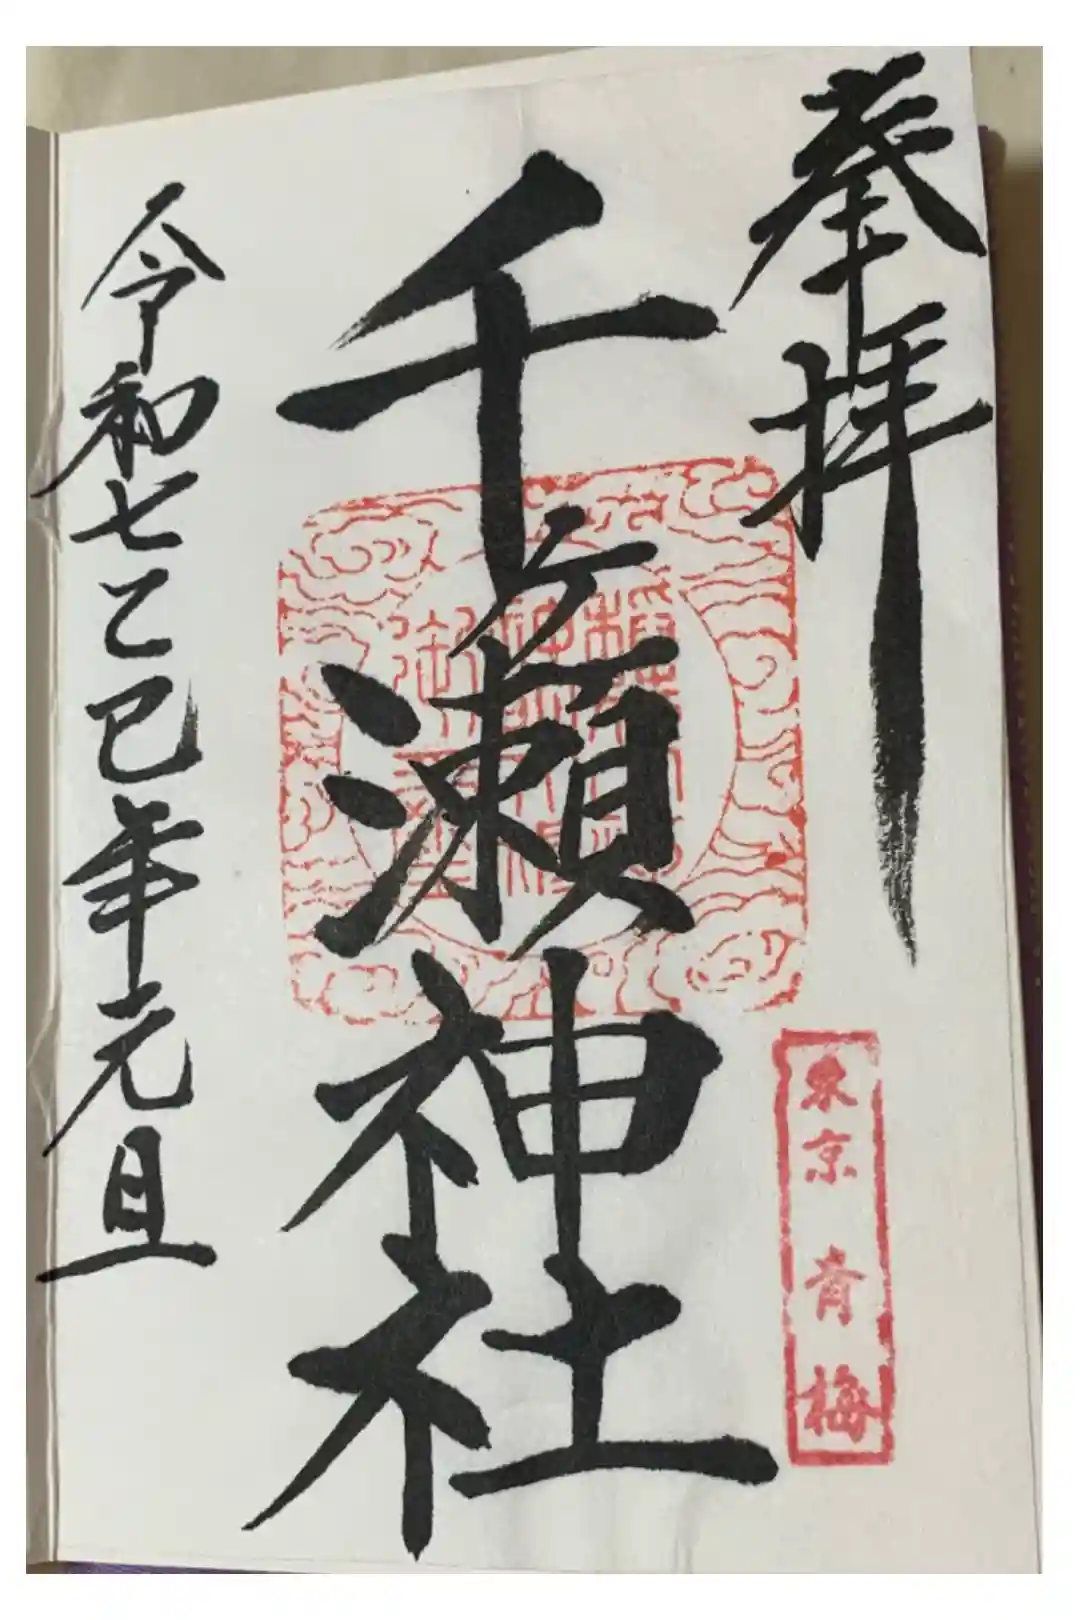 奉拝
東京青梅
千ヶ瀬神社
令和七乙巳年元旦